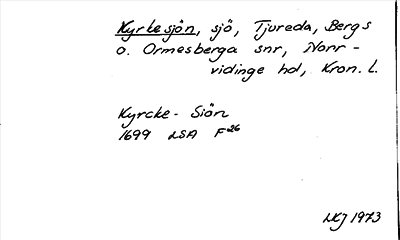 Kyrkesjön, sjö, Tjureda, Bergs
o. Ormesberga snr, Norr-
vidinge hd, Kron. l.
Kyrcke-Siön
1699 LSA F26
LKJ 1973